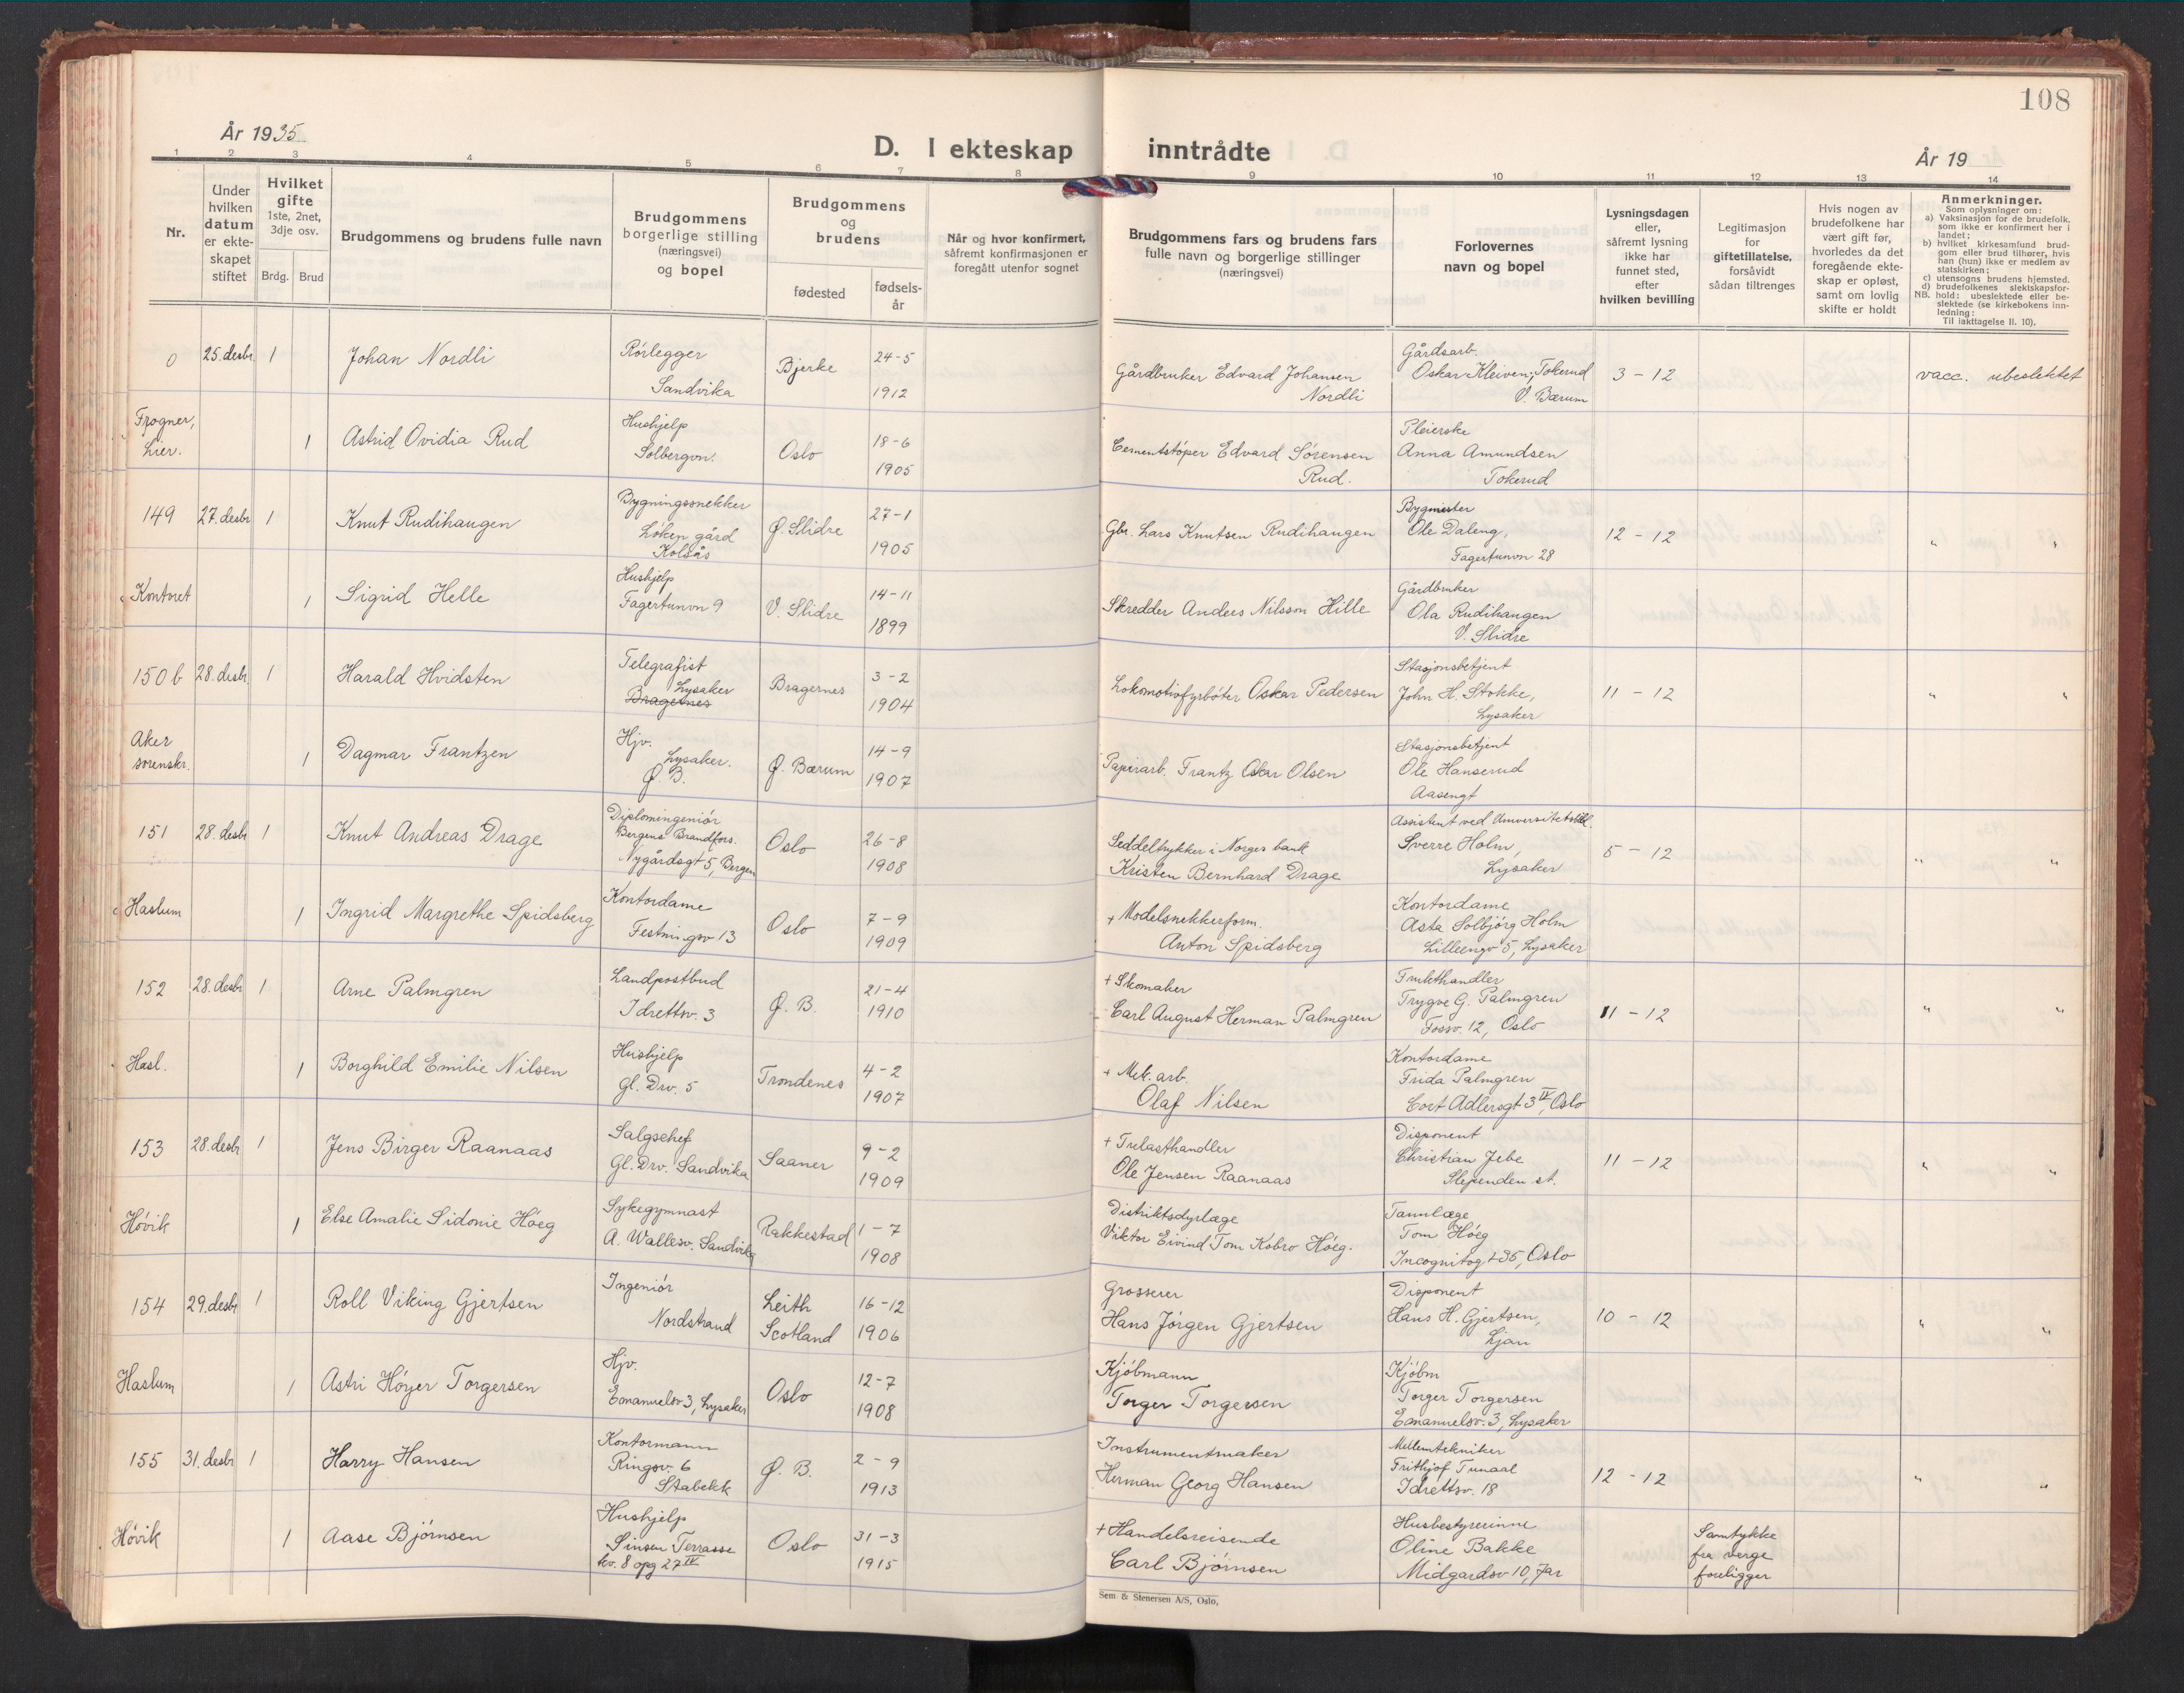 108
År 1935
D. I ekteskap inntrådte
År 19
1 2 3 4 5 6 7 8 9 10 11 12 13 14
Nr.
Under
hvilken
datum
er ekte-
skapet
stiftet
Hvilket
gifte
1ste, 2net,
3dje osv.
Brdg. Brud
Brudgommens og brudens fulle navn
Brudgommens
borgerlige stilling
(næringsvei)
og bopel
Brudgommens
og
brudens
fødested
fødsels-
år
Når og hvor konfirmert,
såfremt konfirmasjonen er
foregått utenfor sognet
Brudgommens fars og brudens fars
fulle navn og borgerlige stillinger
(næringsvei)
Forlovernes
navn og bopel
Lysningsdagen
eller,
såfremt lysning
ikke har
funnet sted,
efter
hvilken bevilling
Legitimasjon
for
giftetillatelse,
forsåvidt
sådan tiltrenges
Hvis nogen av
brudefolkene har
vært gift før,
hvorledes da det
foregående ekte-
skap er opløst,
samt om lovlig
skifte er holdt
Anmerkninger.
Som oplysninger om:
a) Vaksinasjon for de brudefolk,
som ikke er konfirmert her i
landet;
b) hvilket kirkesamfund brud-
gom eller brud tilhører, hvis
han (hun) ikke er medlem av
statskirken;
c) utensogns brudens hjemsted.
d) brudefolkenes slektskapsfor-
NB. hold: ubeslektede eller be-
slektede (se kirkebokens inn-
ledning:
Til iakttagelse II. 10).
0 25. desbr 1 Johan Nordli
Rørlegger
Sandvika
Bjerke
24-5
1912
Gårdbruker Edvard Johansen
Nordli
Gårdsarb.
Oskar Kleiven, Tokerud
V. Bærum
3-12
vacc. ubeslektet
Frogner,
Lier.
1 Astrid Ovidia Rud
Hushjelp
Solbergvn.
Oslo
18-6
1905
Cementstøper Edvard Sørensen
Rud.
Pleierske
Anna Amundsen
Tokerud
149 27. desbr 1 Knut Rudihaugen
Bygningssnekker
Løken gård
Kolsås
Ø. Slidre
27-1
1905
Gbr. Lars Knutsen Rudihaugen
Bygmester
Ole Daleng,
Fagertunvn 28
12-12
" "
Kontoret
1 Sigrid Helle
Hushjelp
Fagertunvn 9
V. Slidre
14-11
1899
Skredder Anders Nilsson Hille
Gårdbruker
Ola Rudihaugen
V. Slidre
150 b 28. desbr. 1 Harald Hvidsten
Telegrafist
Lysaker
Bragernes
Bragernes
3-2
1904
Lokomotivfyrbøter Oskar Pedersen
Stasjonsbetjent
John H. Stokke,
Lysaker
11-12
" "
Aker
sorenskr.
1 Dagmar Frantzen
Hjv.
Lysaker.
Ø. B.
Ø. Bærum
14-9
1907
Papirarb. Frantz Oskar Olsen
Stasjonsbetjent
Ole Hanserud
Aasengt
151 28. desbr 1 Knut Andreas Drage
Diplomingeniør
Bergens Brandfors.
Nygårdsgt 5, Bergen
Oslo
26-8
1908
Seddeltrykker i Norges bank
Kristen Bernhard Drage
Assistent ved Universitetsbibl.
Sverre Holm,
Lysaker
5-12
" "
Haslum
1 Ingrid Margrethe Spidsberg
Kontordame
Festningsv 13
Oslo
7-9
1909
+ Modelsnekkerform.
Anton Spidsberg
Kontordame
Asta Solbjørg Holm
Lilleengv 5, Lysaker
152 28. desbr 1 Arne Palmgren
Landpostbud
Idrettsv. 3
Ø. B.
21-4
1910
+ Skomaker
Carl August Herman Palmgren
Frukthandler
Trygve G. Palmgren
Fossv. 12, Oslo
11-12
" "
Hasl.
1 Borghild Emilie Nilsen
Hushjelp
Gl. Drv. 5
Trondenes
4-2
1907
+ Mek. arb.
Olaf Nilsen
Kontordame
Frida Palmgren
Cort Adlersgt 3 IV, Oslo
153 28. desbr 1 Jens Birger Raanaas
Salgschef
Gl. Drv. Sandvika
Saaner
9-2
1909
+ Trelasthandler
Ole Jensen Raanaas
Disponent
Christian Jebe
Slependen st.
11-12
" "
Høvik
1 Else Amalie Sidonie Høeg
Sykegymnast
A. Wallesv. Sandvika
Rakkestad
1-7
1908
Distriktsdyrlæge
Viktor Eivind Tom Kobro Høeg.
Tannlæge
Tom Høeg
Incognitogt 35, Oslo
154 29. desbr 1 Roll Viking Gjertsen
Ingeniør
Nordstrand
Leith
Scotland
16-12
1906
Grosserer
Hans Jørgen Gjertsen
Disponent
Hans H. Gjertsen,
Ljan
10-12
" "
Haslum
1 Astri Høyer Torgersen
Hjv.
Emanuelsv 3, Lysaker
Oslo
12-7
1908
Kjøbmann
Torger Torgersen
Kjøbm
Torger Torgersen
Emanuelsv. 3, Lysaker
155 31. desbr 1 Harry Hansen
Kontormann
Ringsv. 6
Stabekk
Ø. B.
2-9
1913
Instrumentmaker
Herman Georg Hansen
Mellemtekniker
Frithjof Tunaal
Idrettsv. 18
12-12
" "
Høvik
1 Aase Bjørnsen
Hushjelp
Sinsen Terrasse
kv. 8 opg 27 IV
Oslo
31-3
1915
+ Handelsreisende
Carl Bjørnsen
Husbestyrerinne
Oline Bakke
Midgardsv 10, Jar
Samtykke
fra verge
foreligger
Sem & Stenersen A/S, Oslo.